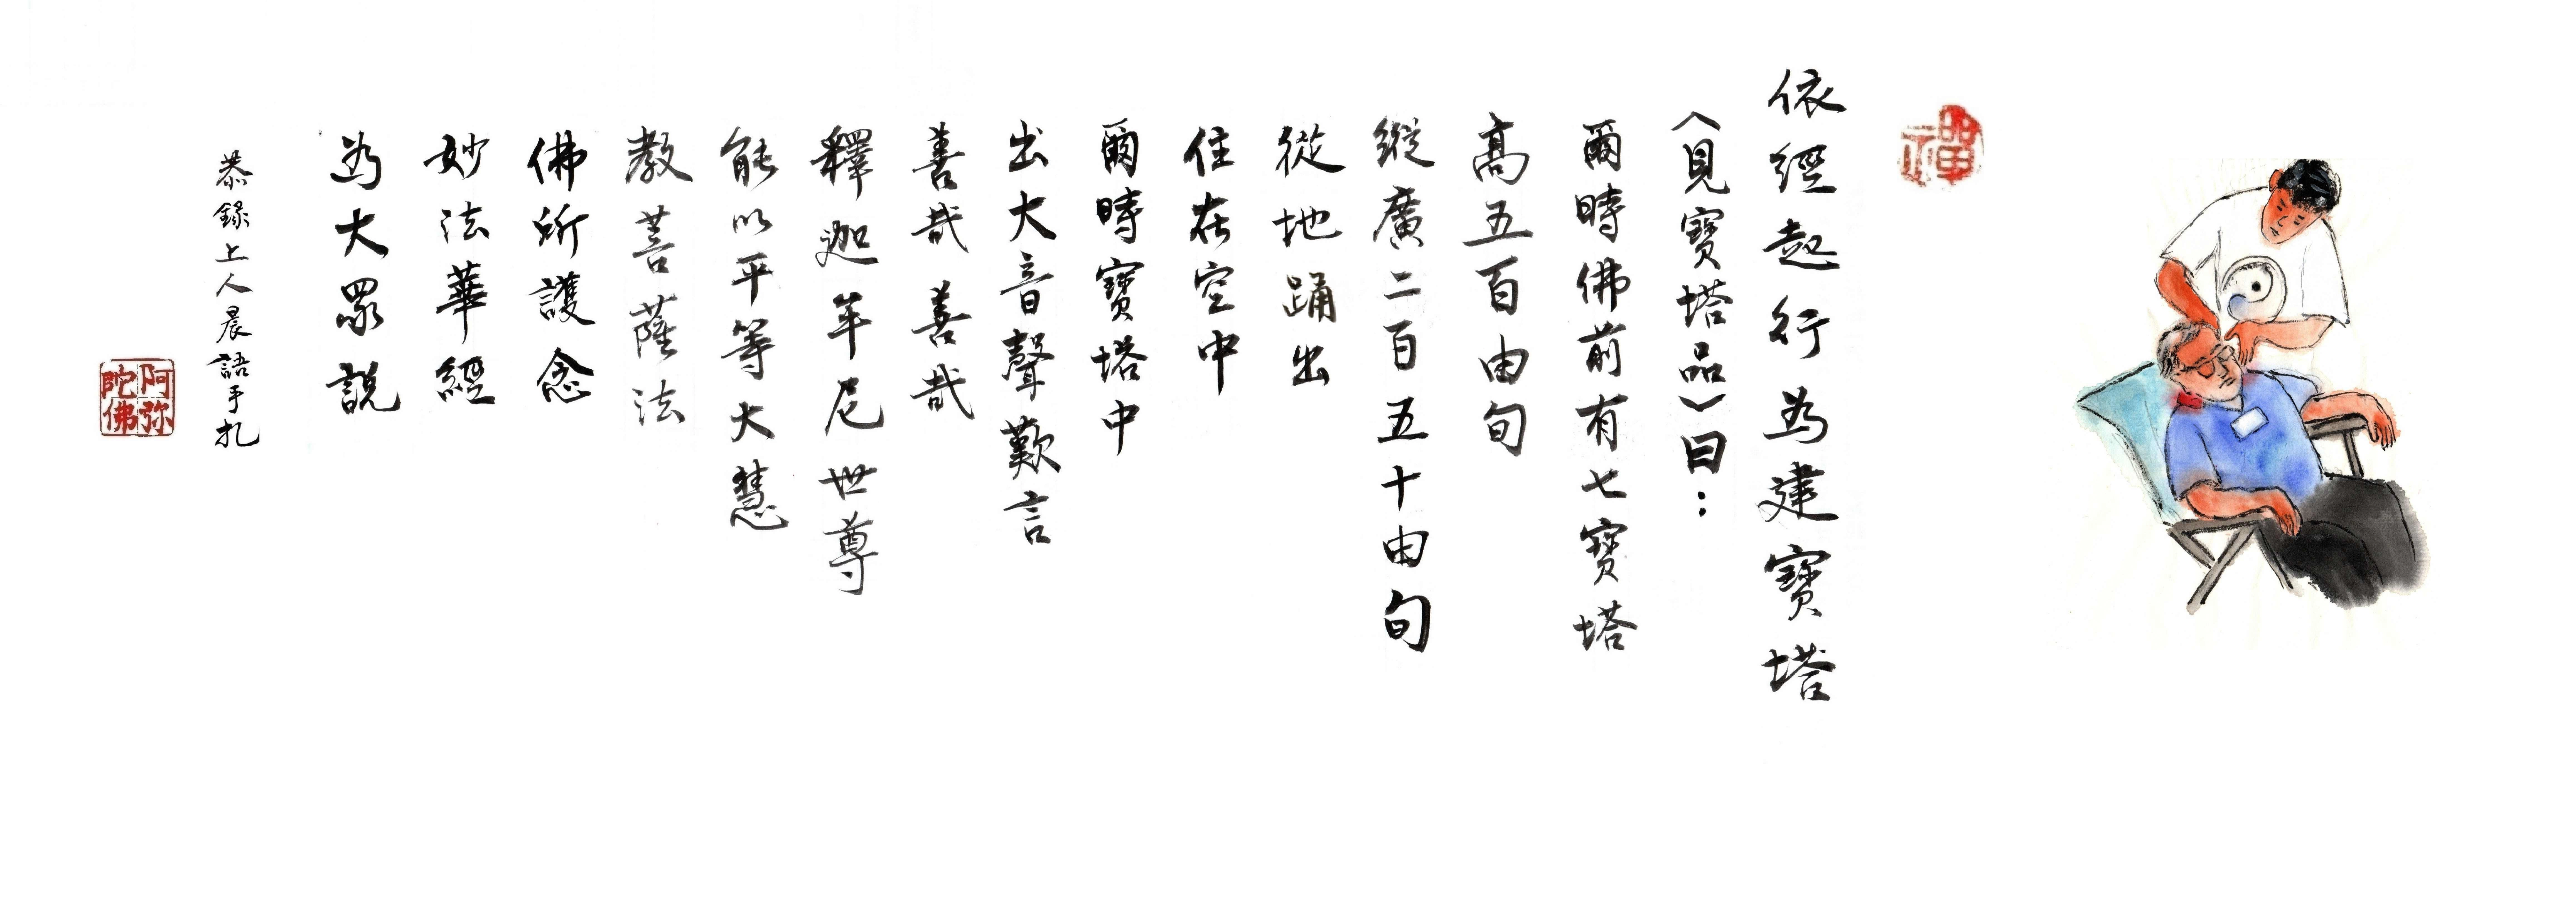 禪
依經起行為建寶塔
〈見寶塔品〉曰：
爾時佛前有七寶塔
高五百由旬
縱廣二百五十由旬
從地踊出
住在空中
爾時寶塔中
出大音聲歎言
善哉善哉
釋迦牟尼世尊
能以平等大慧
教菩薩法
佛所護念
妙法華經
為大眾說
恭錄上人晨語手扎
阿弥陀佛